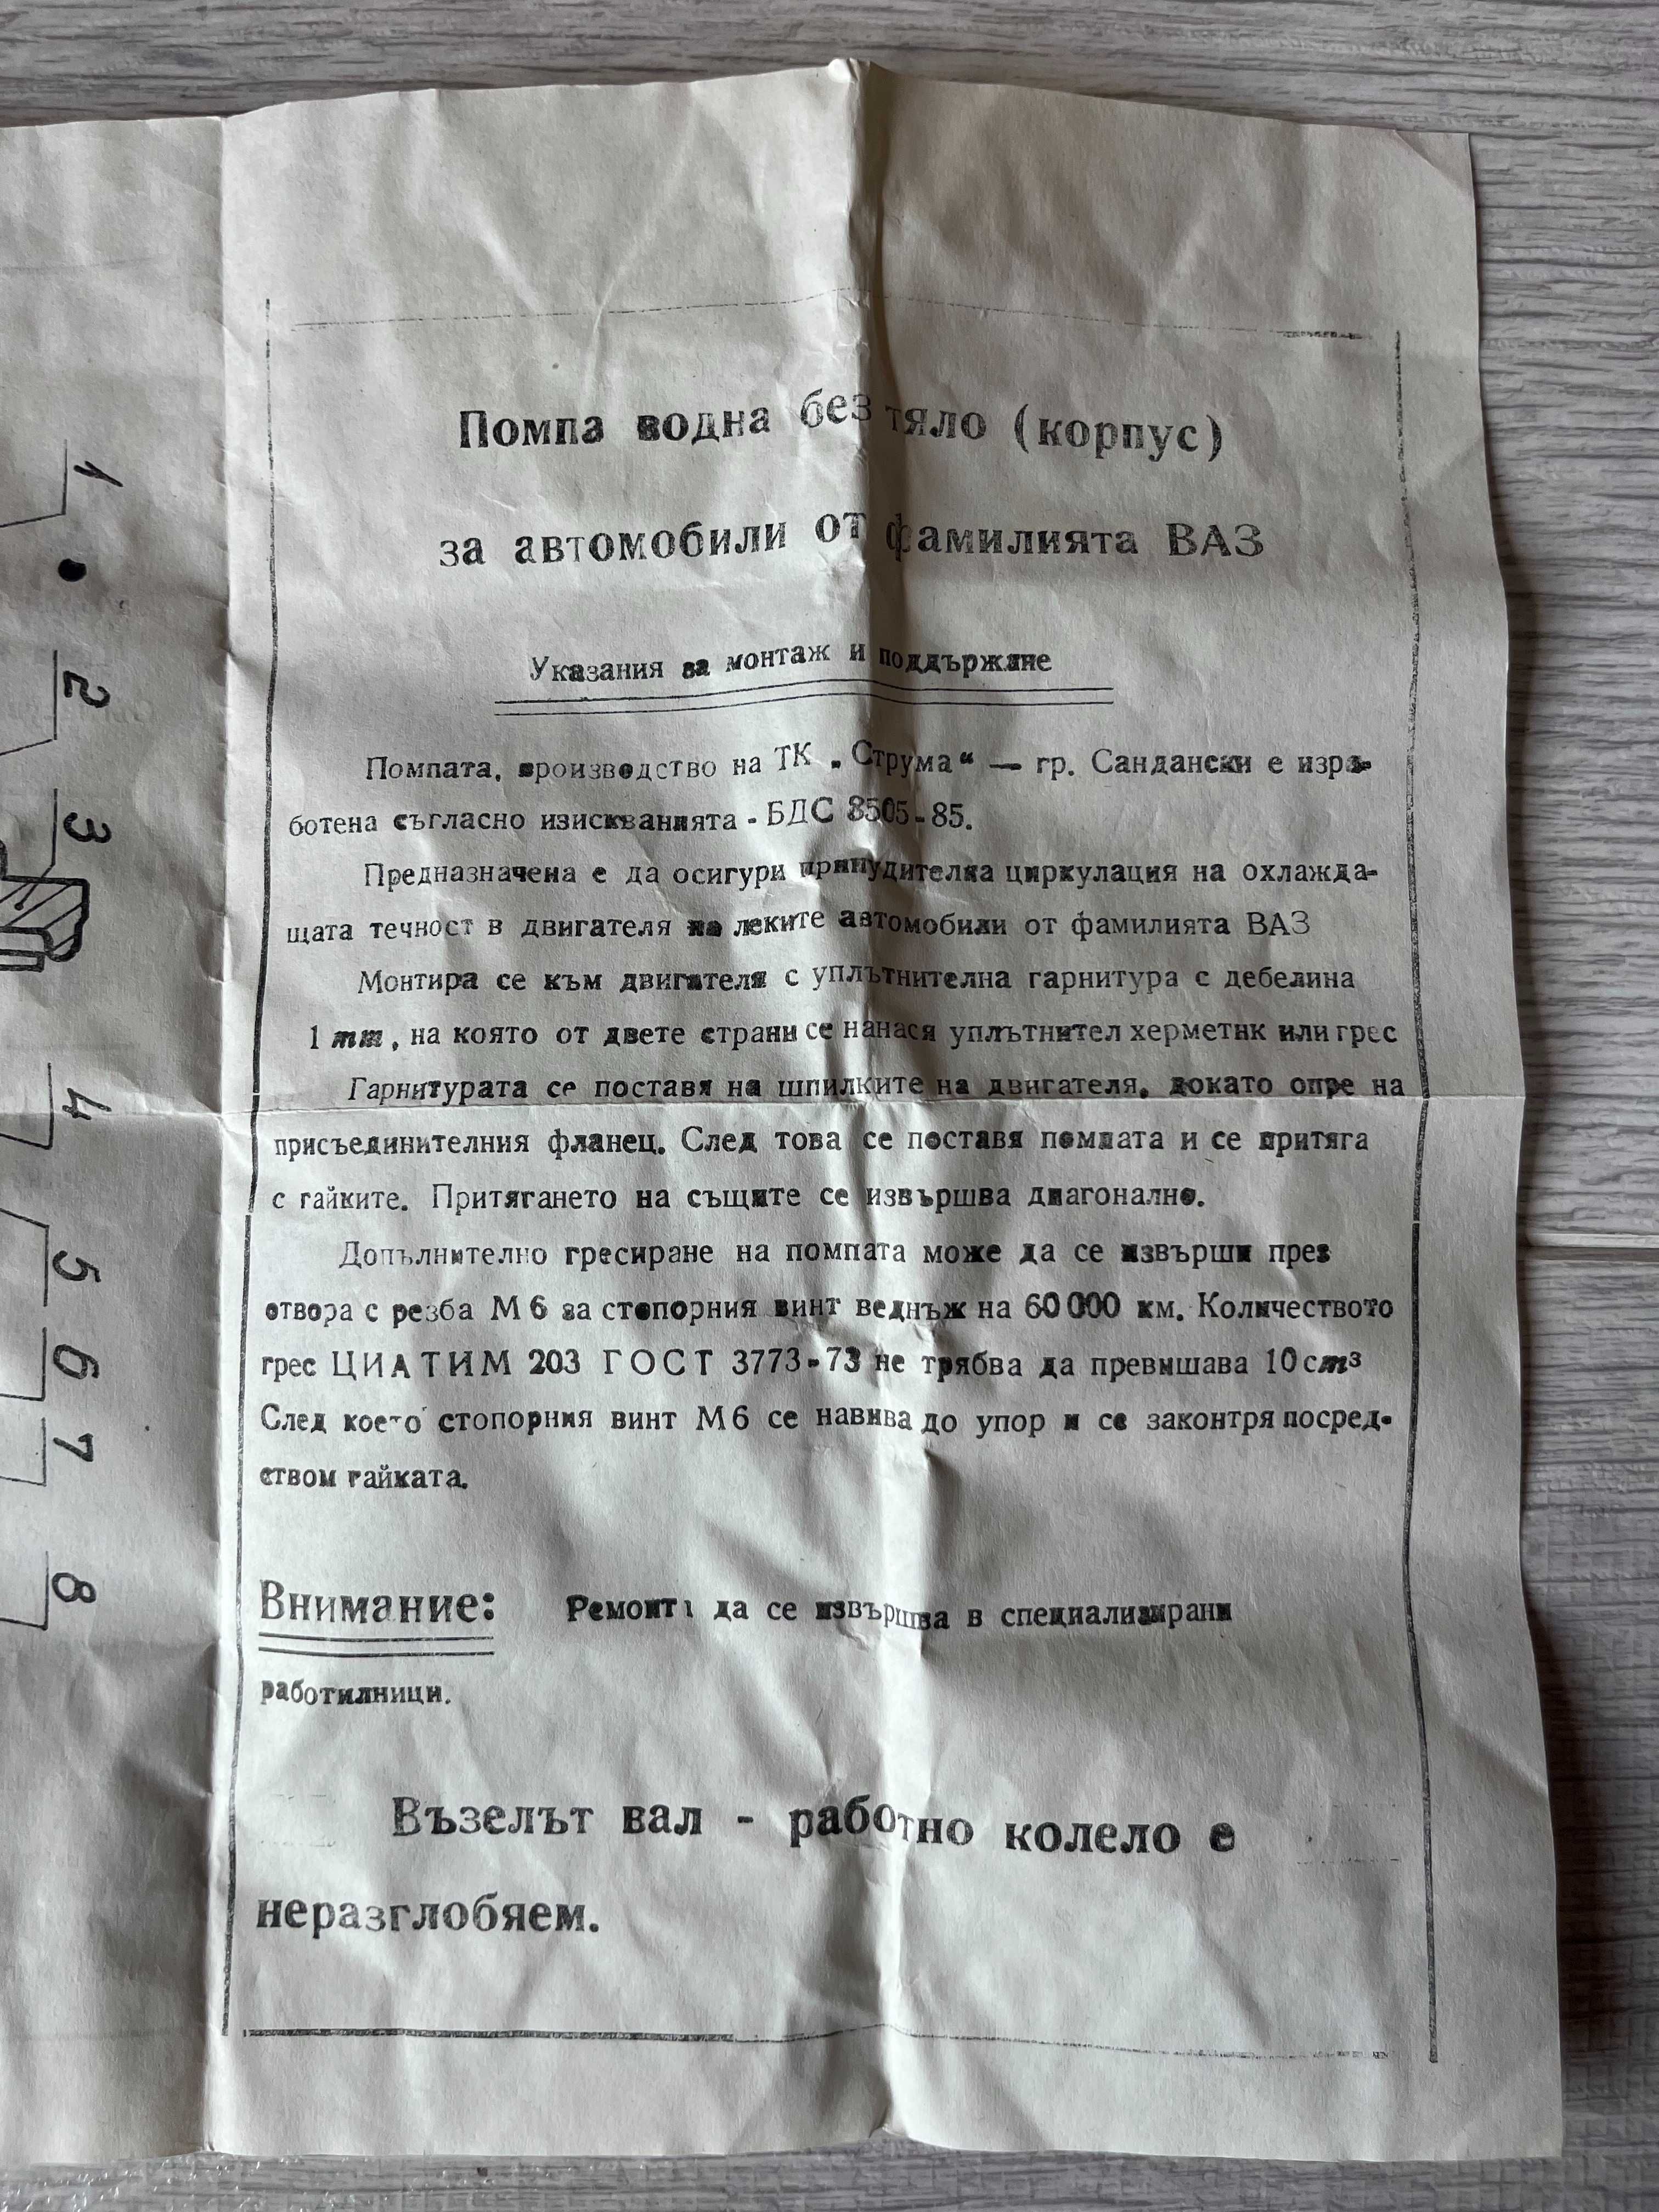 Помпа водна без тяло (корпус)
за автомобили от фамилията ВАЗ
Указания за монтаж и поддържане
Помпата, производство на ТК „Струма“ — гр. Сандански е изра-
ботена съгласно изискванията - БДС 8505-85.
Предназначена е да осигури принудителна циркулация на охлажда-
щата течност в двигателя на леките автомобили от фамилията ВАЗ
Монтира се към двигателя с уплътнителна гарнитура с дебелина
1 mm, на която от двете страни се нанася уплътнител херметик или грес
Гарнитурата се поставя на шпилките на двигателя, докато опре на
присъединителния фланец. След това се поставя помпата и се притяга
с гайките. Притягането на същите се извършва диагонално.
Допълнително гресиране на помпата може да се извърши през
отвора с резба М 6 за стопорния винт веднъж на 60 000 км. Количеството
грес ЦИАТИМ 203 ГОСТ 3773-73 не трябва да превишава 10 cm³
След което стопорния винт М 6 се навива до упор и се законтря посред-
ством гайката.
Внимание: Ремонтı да се извършва в специализирани
работилници.
Възелът вал - работно колело е
неразглобяем.
1
2
3
4
5
6
7
8